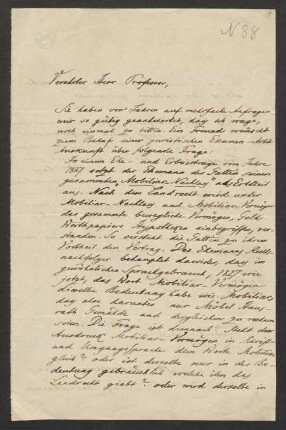 N 88
Verehrter Herr Professor,
Sie haben vor Jahren auf mehrfache Anfragen
mir so gütig geantwortet, dass ich wage,
noch einmal zu bitten. Ein Freund wünscht
zum Behuf einer juristischen Examen-Arbeit
Auskunft über folgende Frage.
In einem Ehe- und Erbvertrage vom Jahre
1827 setzt der Ehemann der Gattin seinen
gesammten Mobiliar-Nachlass als Erbtheil
aus. Nach dem Landrecht wird unter
Mobiliar-Nachlass und Mobiliar-Vermögen
das gesammte bewegliche Vermögen, Geld
Werthpapiere Hypotheken einbegriffen, ver-
standen. So versteht die Gattin zu ihrem
Vortheil den Vertrag. Des Ehemanns Rechts-
nachfolger behauptet dawider, dass im
gewöhnlichen Sprachgebrauch, 1827 wie
jetzt, das Wort Mobiliar-Vermögen
dieselbe Bedeutung habe wie Mobiliar,
dass also darunter nur Möbel Haus-
rath Gemälde und dergleichen zu verstehen
seien. Die Frage ist demnach: Steht der
Ausdruck Mobiliar-Vermögen in Schrift-
und Umgangssprache dem Wort Mobiliar
gleich? oder ist derselbe nur in der Be-
deutung gebräuchlich welche ihm das
Landrecht giebt? oder wird derselbe in